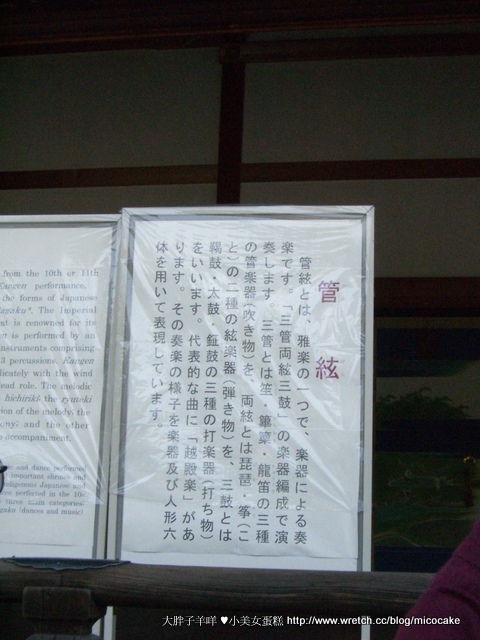 from the 10th or 11th
Kangen performance,
the forms of Japanese
gagaku". The Imperial
is renowned for its
is performed by an
instruments comprising
3 percussions. Kangen
delicately with the wind
lead role. The melodic
hichiriki, the ryuteki
of the melody, the
and the other
accompaniment.
and dance performed
important shrines and
indigenous Japanese and
perfected in the 10
three main categories:
(dances and music)
管絃
管絃とは、雅楽の一つで、楽器による奏
楽です。「三管両絃三鼓」の楽器編成で演
奏します。三管とは笙・篳篥・龍笛の三種
の管楽器(吹き物)を、両絃とは琵琶・箏(こ
と)の二種の絃楽器(弾き物)を、三鼓とは
鞨鼓・太鼓・鉦鼓の三種の打楽器(打ち物)
をいいます。代表的な曲に「越殿楽」があ
ります。その奏楽の様子を楽器及び人形六
体を用いて表現しています。
大胖子羊咩♥小美女蛋糕 http://www.wretch.cc/blog/micocake